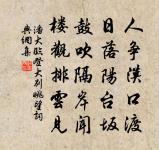 人爭漢口渡
日落陽台坂
鼓吹隔岸聞
樓觀排雲見
潘大臨登大別眺望詞
典網集